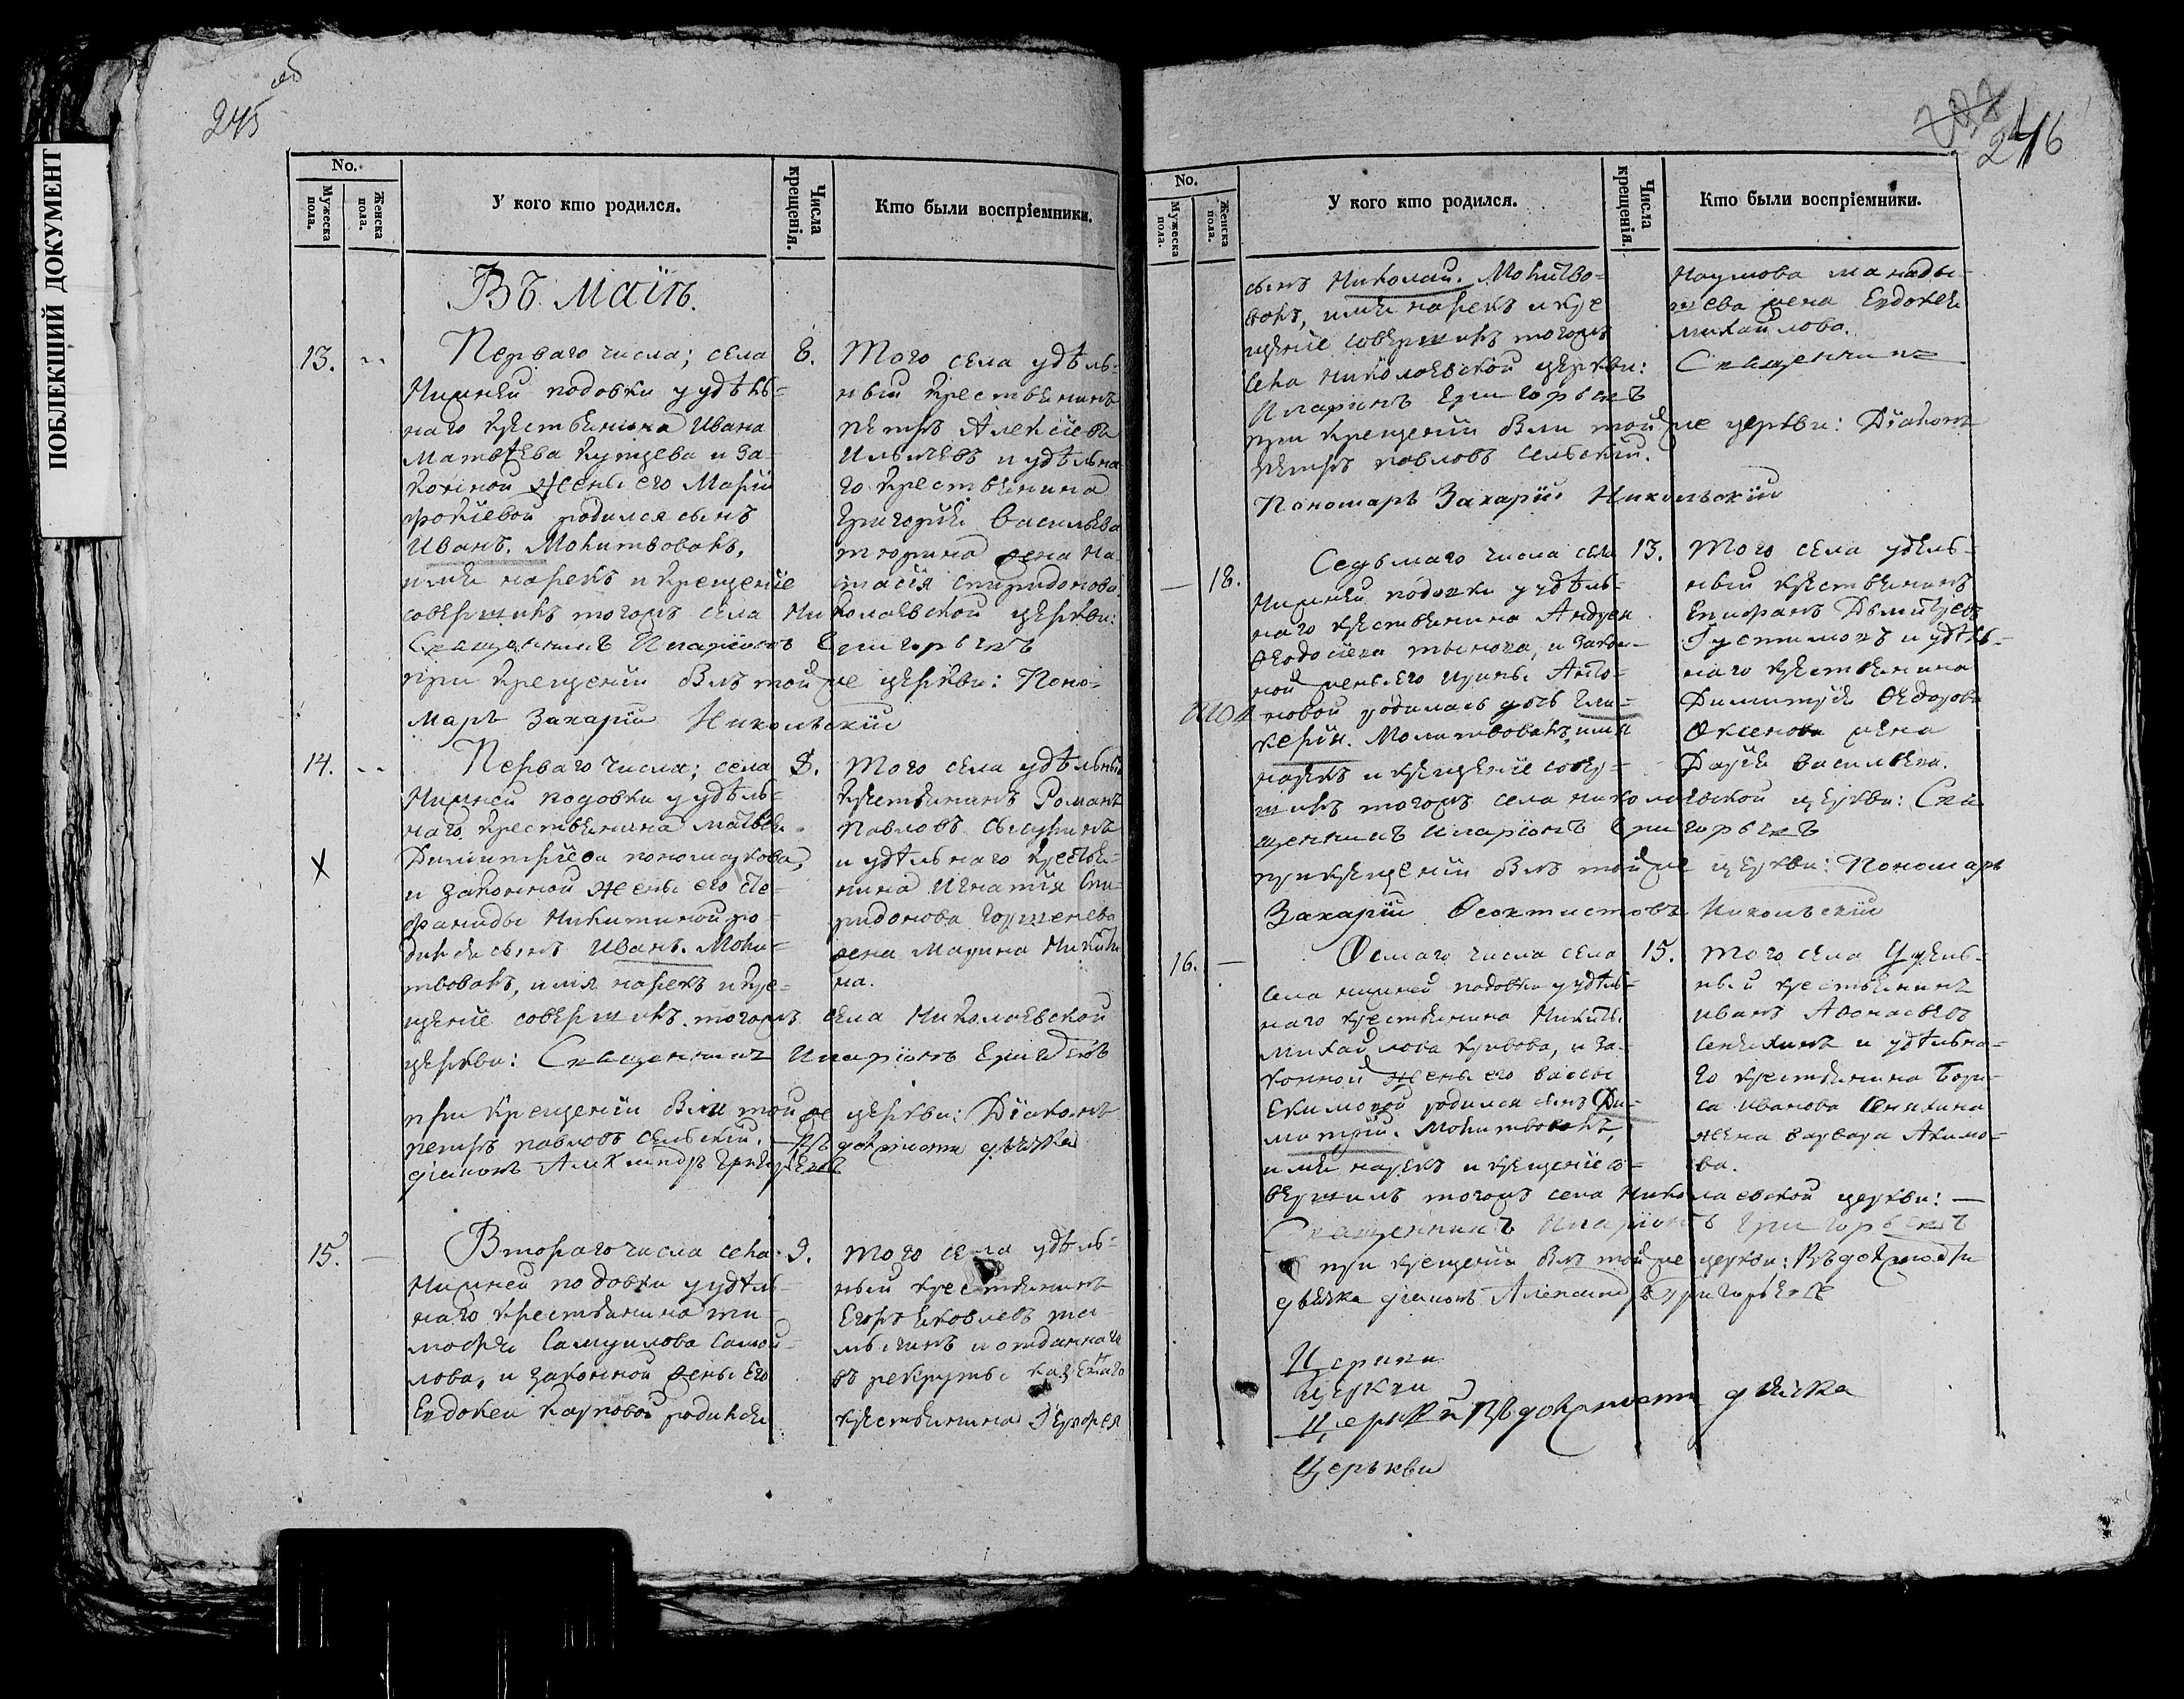 ПОБЛЕКШИЙ ДОКУМЕНТ
245 об
No.
Мужеска пола.
Женска пола.
У кого кто родился.
Числа крещенія.
Кто были воспріемники.
Въ Маіѣ.
13.
Перваго числа; села
Нижней подовки у удѣль=
наго крестьянина Ивана
Матвѣева Купцева и за=
конной жены его Маріи
родился сынъ
Иванъ. Молитвовалъ,
имя нарекъ и крещеніе
совершилъ тогожъ села Николаевской церкви:
Священникъ Иларіонъ Григорьевъ
при крещеніи былъ тойже церкви: Поно=
марь Захарій Никольскій
8.
Того села удѣль=
ный крестьянинъ
петръ Алексіевъ
и удѣльна
го крестьянина
Григорія Васильева
жена На
стасія спиридонова.
14.
Перваго числа; села
Нижней подовки у удѣль=
наго крестьянина матвѣя
Димитріева пономаркова,
и законной жены его Сте=
фаниды Никитиной ро=
дился сынъ Иванъ. Моли=
твовалъ, имя нарекъ и кре=
щеніе совершилъ тогожъ села Николаевской
церкви: Священникъ Иларіонъ Григорьевъ
при крещеніи были тойже церкви: Діаконъ
петръ павловъ сельскій. — въ должности дьячка
діаконъ Александръ Григорьевъ
8.
Того села удѣльный
крестьянинъ Романъ
Павловъ
и удѣльнаго крестья=
нина Игнатія Спи=
ридонова Горшенева
жена Марина Никити
на.
X
15.
Втораго числа села
Нижней подовки у удѣль=
наго крестьянина ти=
мофея Самуилова Самой=
лова, и законной жены его
Евдокеи Карповой родился
9.
того села удѣль=
ный крестьянинъ
Егоръ Яковлевъ
и отданнаго
въ рекруты казеннаго
крестьянина
246
No.
Мужеска пола.
Женска пола.
У кого кто родился.
Числа крещенія.
Кто были воспріемники.
сынъ Николай. Молитво=
валъ, имя нарекъ и кре
щеніе совершилъ тогожъ
села Николаевской церкви: Священникъ
Иларіонъ Григорьевъ
при крещеніи были тойже церкви: Діаконъ
петръ павловъ сельскій.
Пономарь Захарій Никольскій
Наумова
жена Евдокея
михайлова.
18.
Седьмаго числа села
Нижней подовки у удѣль=
наго крестьянина Андрея
Ѳеодосіева и закон=
ной жены его Ирины Анто=
новой родилась дочь Гли=
керія. Молитвовалъ, имя
нарекъ и крещеніе совер=
шилъ тогожъ села николаевской церкви: Свя
щенникъ Иларіонъ Григорьевъ
при крещеніи былъ тойже церкви: Пономарь
Захарій Ѳеоктистовъ Никольскій
13.
Того села удѣль=
ный крестьянинъ
Епифанъ Димитріевъ
и удѣль=
наго крестьянина
Димитрія Ѳедорова
Оксенова жена
Дарія васильева.
16.
Осмаго числа села
села нижней подовки у удѣль=
наго крестьянина Никиты
Михайлова Кривова, и за=
конной жены его вассы
Екимовой родился сынъ Ди=
митрій. Молитвовалъ,
имя нарекъ и крещеніе со=
вершилъ тогожъ села Николаевской церкви: —
Священникъ Иларіонъ Григорьевъ
при крещеніи былъ тойже церкви: Въ должности
дьячка діаконъ Александръ Григорьевъ
15.
того села удѣль=
ный крестьянинъ
иванъ Аѳонасьевъ
Сенякинъ и удѣльна=
го крестьянина Бори=
са Иванова Сенякина
жена варвара Акимо=
ва.
Церкви
Церкви въ должности дьячка
Церькви